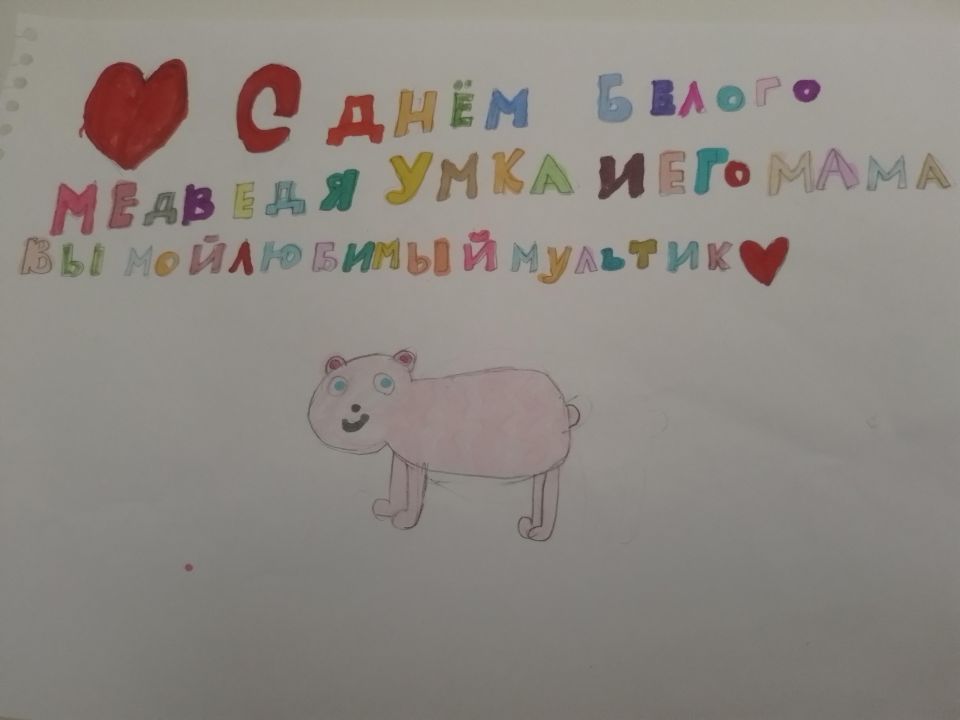 С ДНЁМ БЕЛОГО
МЕДВЕДЯ УМКА И ЕГО МАМА
ВЫ МОЙ ЛЮБИМЫЙ МУЛЬТИК